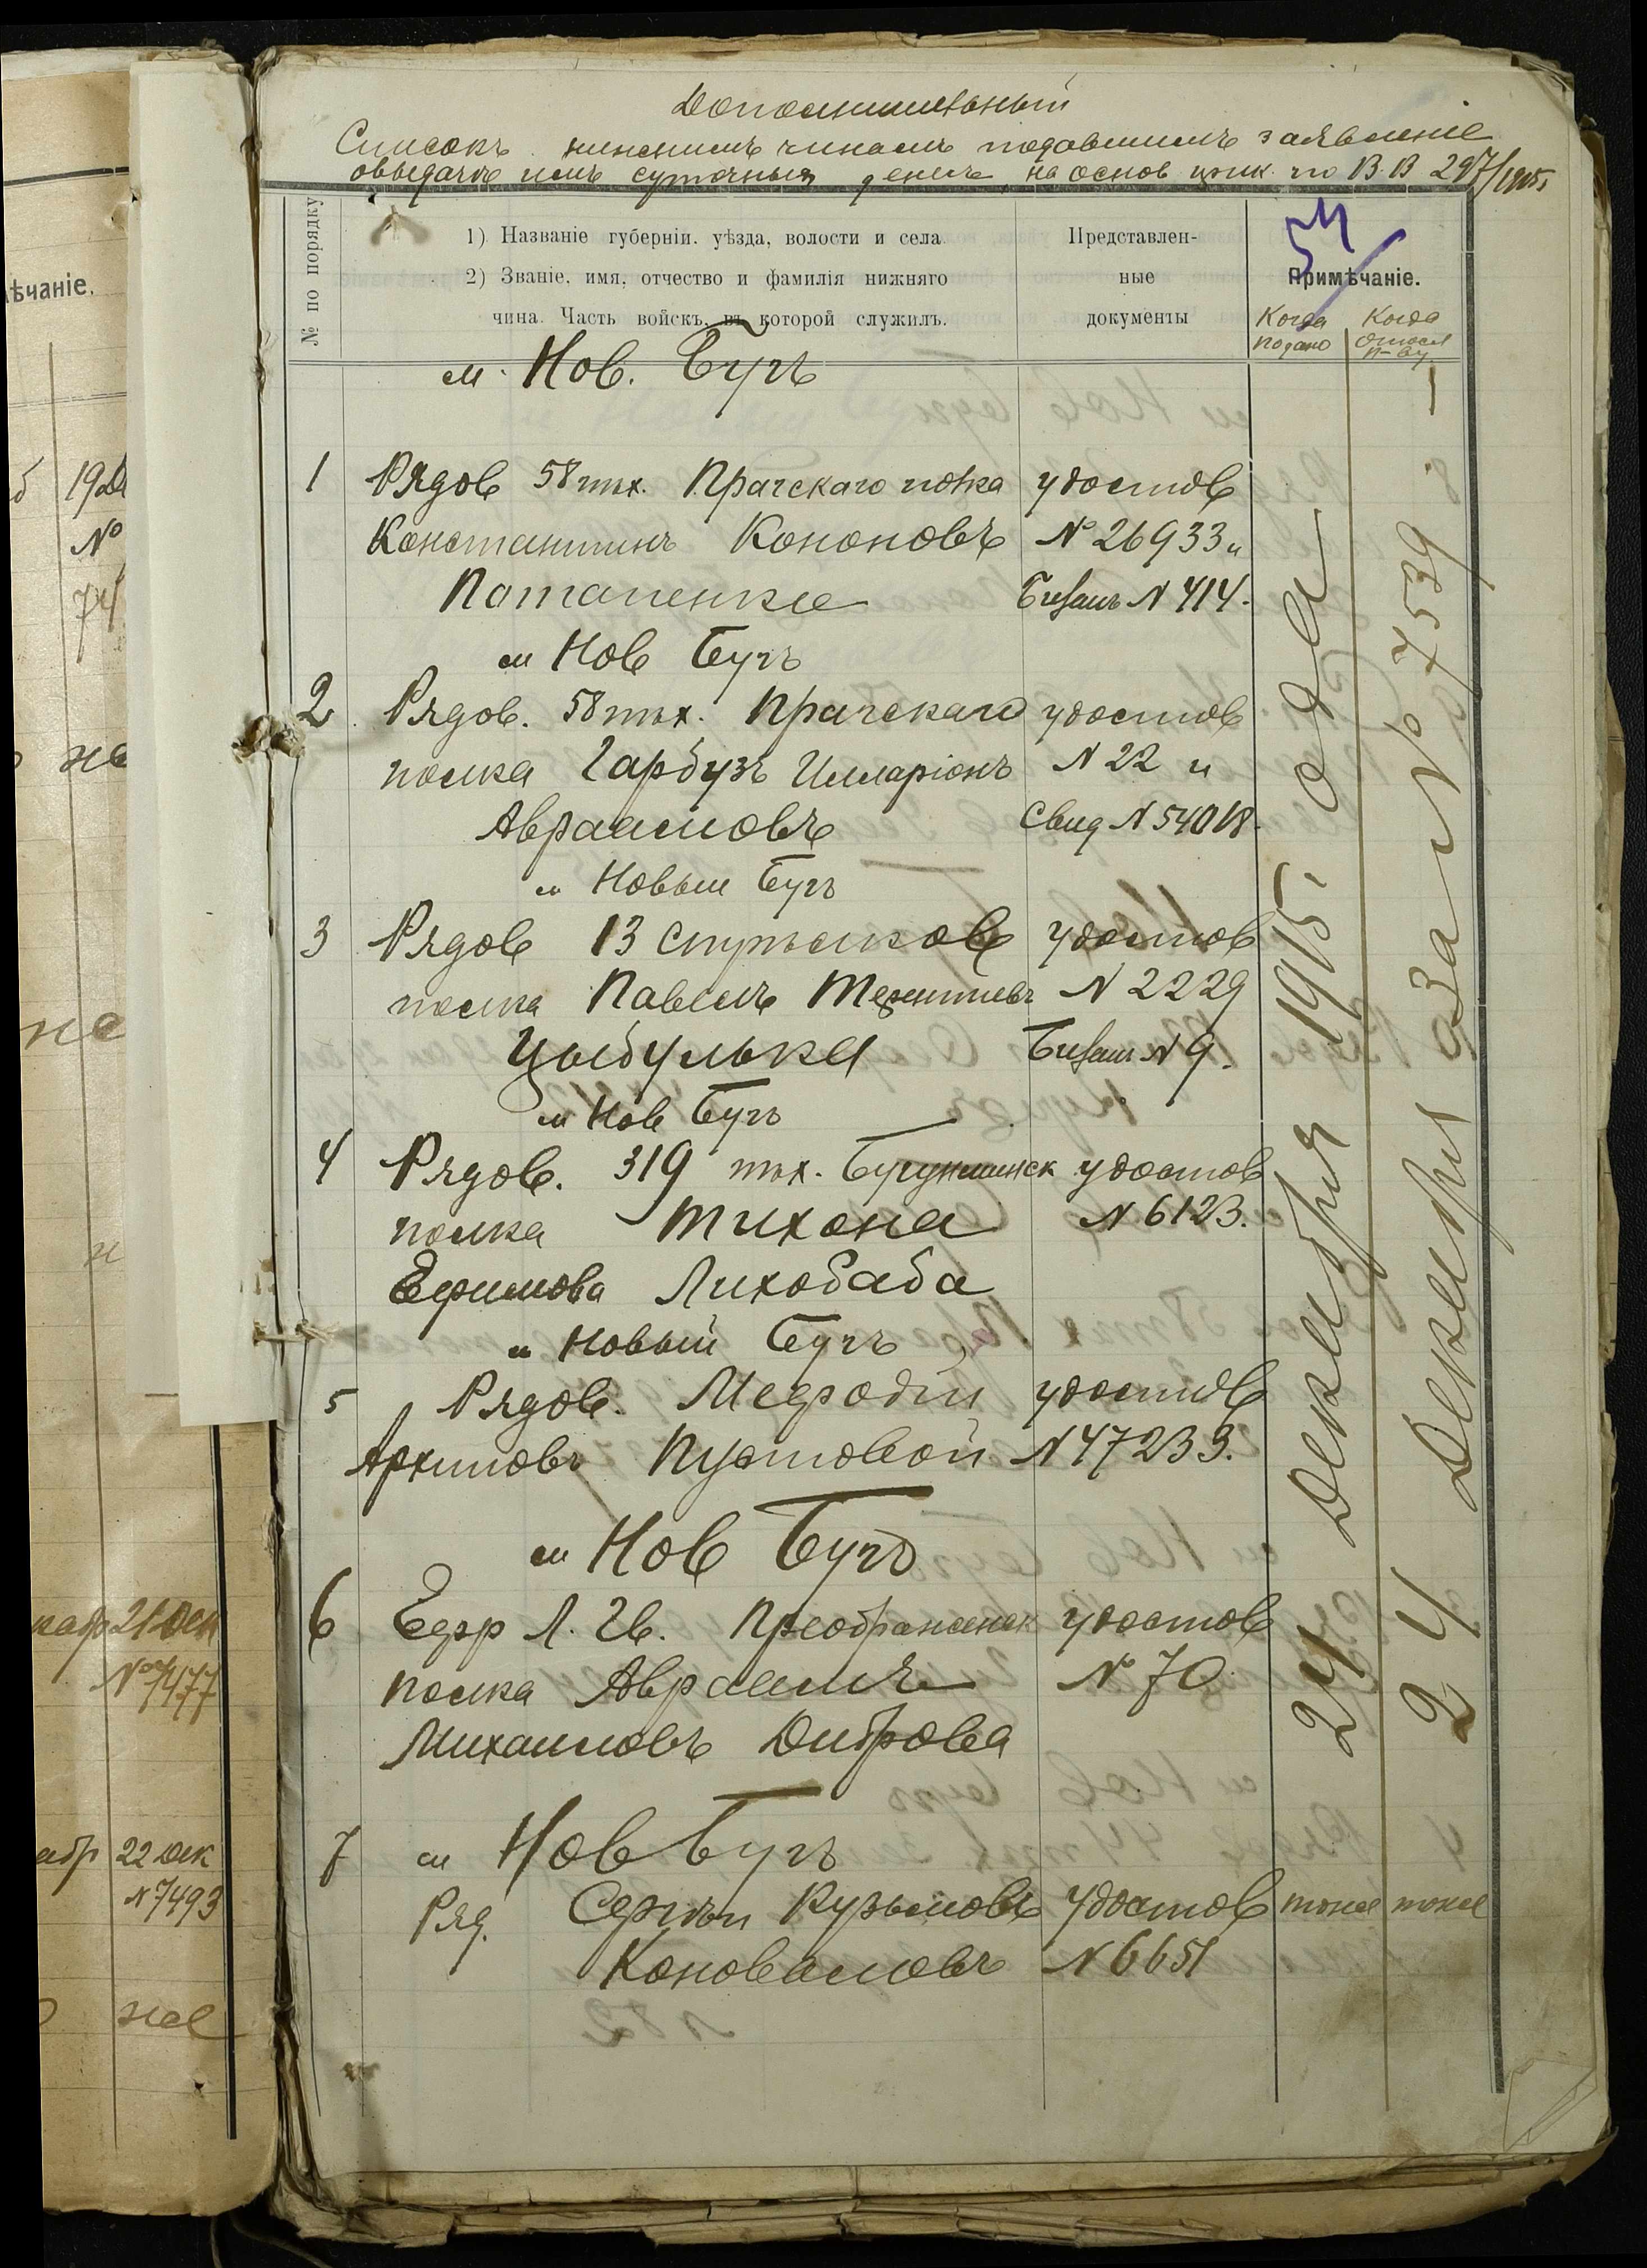 Дополнительный
Списокъ нижнимъ чинамъ подавшимъ заявленіе
овыдаче имъ суточныхъ денегъ на основ цирк. по В В 297/1915
ѣчаніе.
№ по порядку
1) Названіе губерніи, уѣзда, волости и села
2) Званіе, имя, отчество и фамилія нижняго
чина. Часть войскъ, въ которой служилъ.
Представлен-
ные
документы
54
Примѣчаніе.
Когда
подано
Когда
м. Нов. Бугъ
1 Рядов 58 пѣх. Прагскаго полка удостов
Константинъ Кононовъ № 26933 и
Потапенко билетъ № 414.
м Нов Бугъ
2 Рядов. 58 пѣх. Прагскаго удостов
полка Гарбузъ Илларіонъ № 22 и
Авраамовъ Свид № 54018.
м Новый Бугъ
3 Рядов 13 стрѣлков удостов
полка Павелъ Терентіевъ № 2229
Цыбулька билетъ № 9.
м Нов Бугъ
4 Рядов. 319 пѣх. Бугульминск удостов
полка Тихона № 6123.
Ефимова Лихобаба
м Новый Бугъ
5 Рядов. Мефодій удостов
Архиповъ Пустовой № 47233.
м Нов Бугъ
6 Ефр Л. Гв. Преображенск удостов
полка Авраамъ № 70
Михаиловъ Диброва
7 м Нов Бугъ
Ряд. Сергѣй Кузьмовъ удостов тоже тоже
Коноваловъ № 6651
24 Декабря 1915 года
24 Декабря за № 7539
№
74
же
21 Дек
№ 7477
22 Дек
№ 7493
же